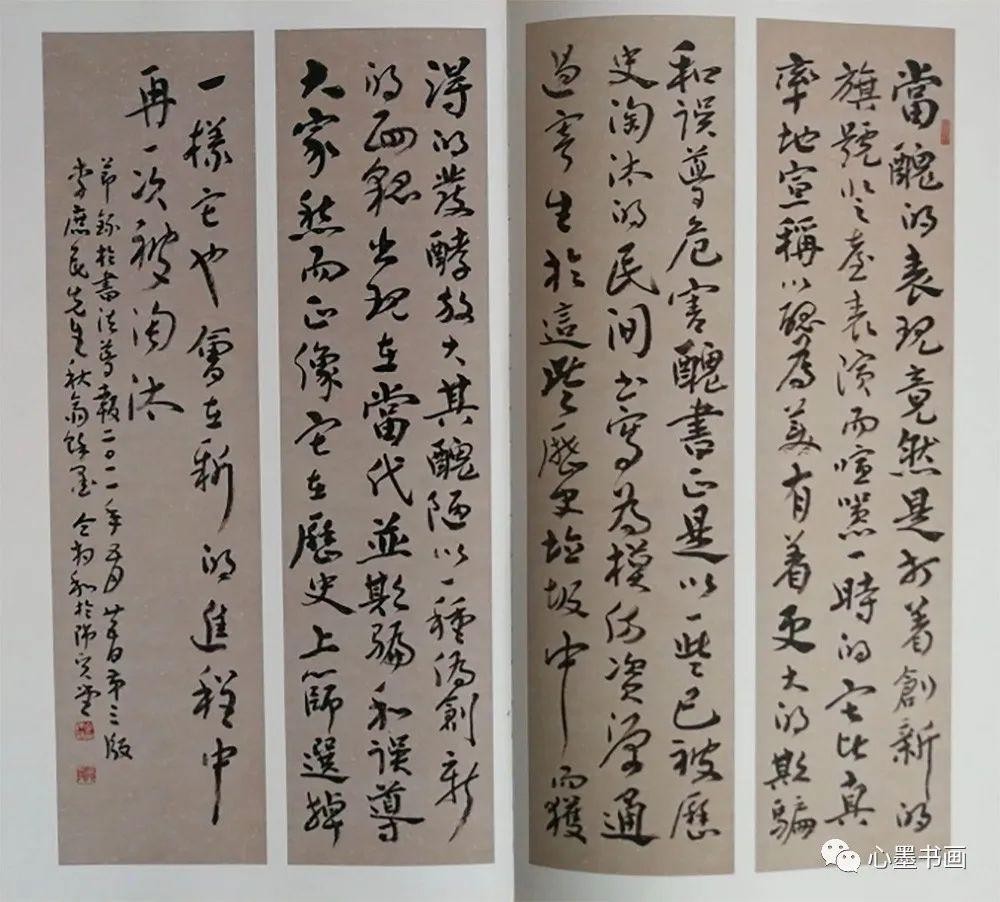 當醜的表現竟然是打着創新的
旗號登臺表演而喧囂一時的它比真
率地宣稱以醜為美有着更大的欺騙
和误導危害醜書正是以一些已被歷
史淘汰的民間书寫為模仿资源通
过寄生於這些歷史垃圾中而獲
得的發酵放大其醜陋以一種偽創新
的面貌出现在當代並欺騙和误導
大家然而正像它在歷史上篩選掉
一樣它也會在新的進程中
再一次被淘汰
節錄於書法導報二〇一一年五月廿五日第三版
李庶民先生秋翁餘墨
心墨书画